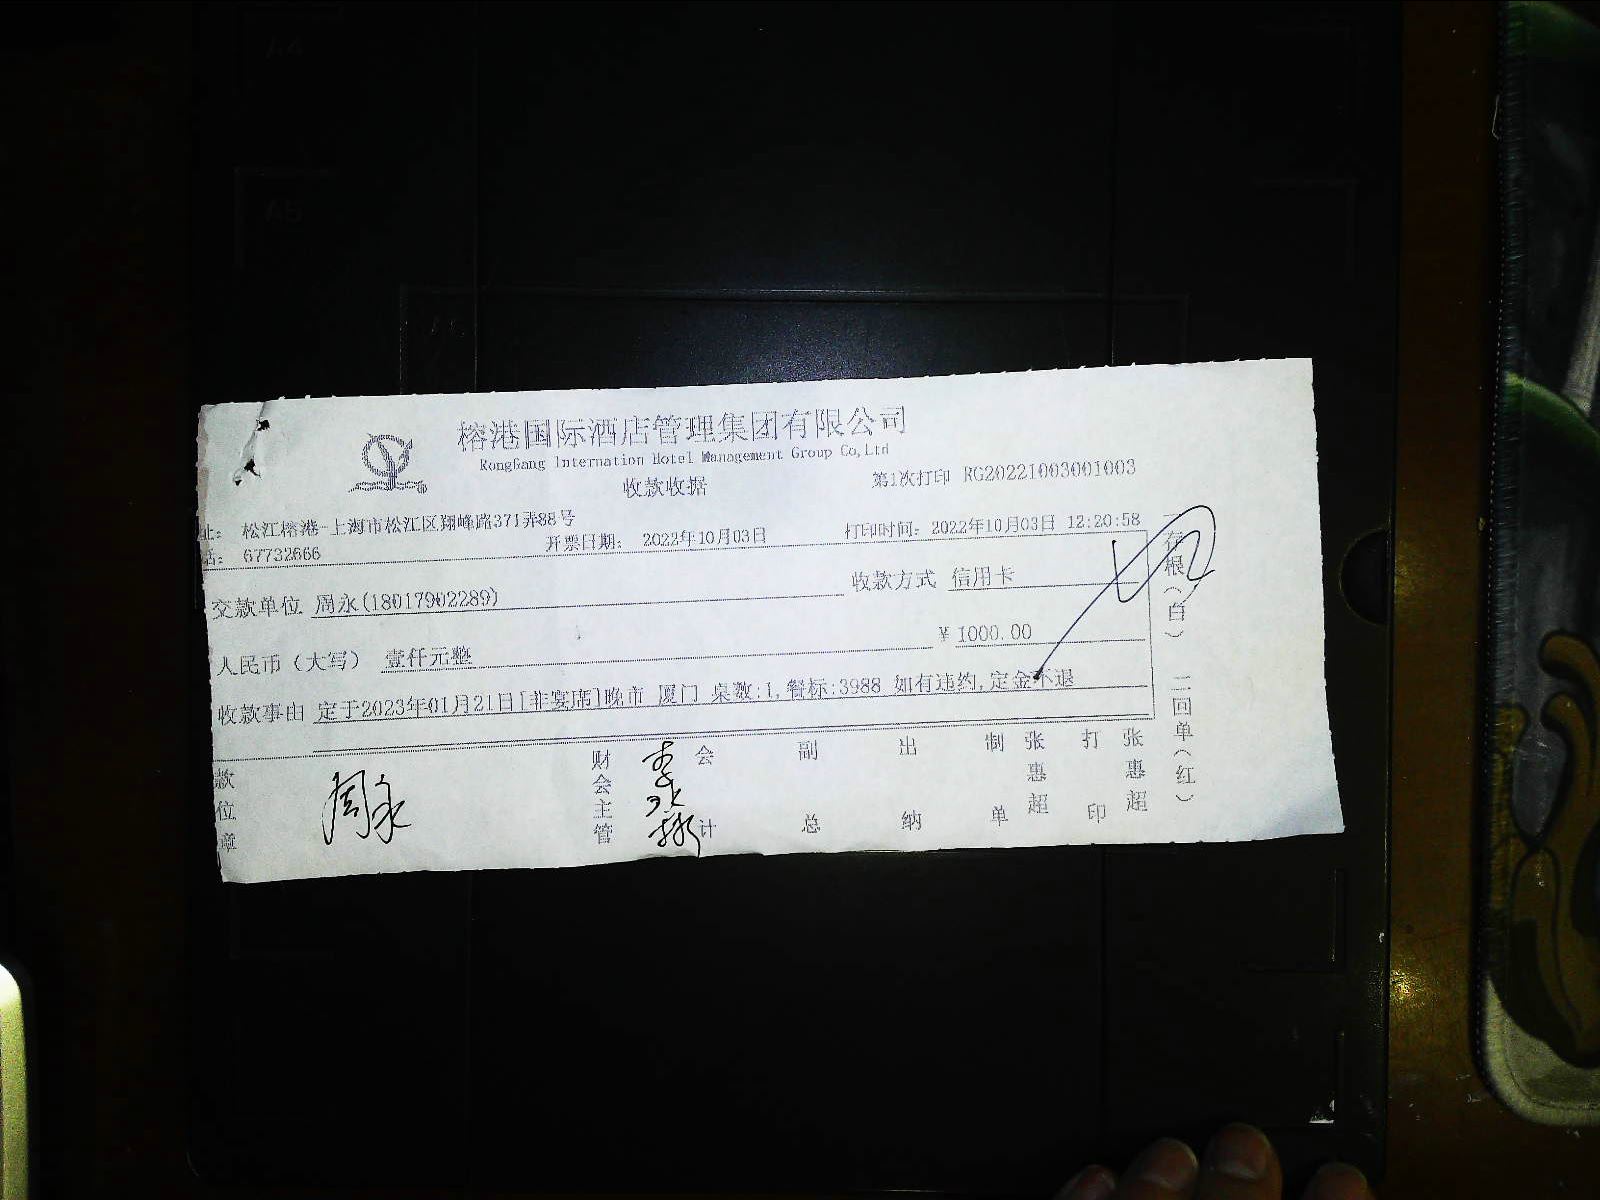 榕港国际酒店管理集团有限公司
RongGang Internation Hotel Management Group Co,Ltd
收款收据
第1次打印 RG20221003001003
址: 松江榕港-上海市松江区翔峰路371弄88号
话: 67732666
开票日期: 2022年10月03日
打印时间: 2022年10月03日 12:20:58
交款单位 周永(18017902289)
收款方式 信用卡
人民币(大写) 壹仟元整
¥ 1000.00
收款事由 定于2023年01月21日[非宴席]晚市 厦门 桌数:1,餐标:3988 如有违约,定金不退
款位章 周永
财会主管
会计
副总
出纳
制单 张惠超
打印 张惠超
一存根(白) 二回单(红)
A4
A5